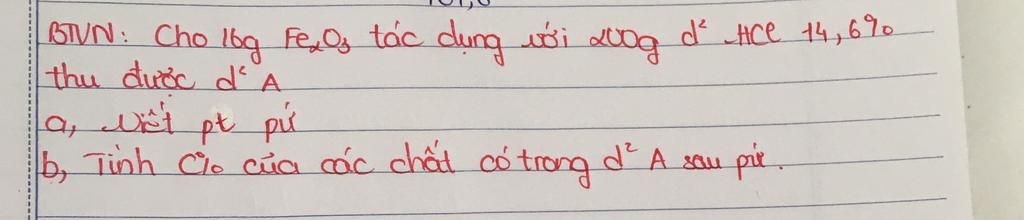 BTVN: Cho 16g Fe₂O₃ tác dụng với 200g d² HCl 14,6%
thu được d² A
a, Viết pt pứ
b, Tính C% của các chất có trong d² A sau pứ.